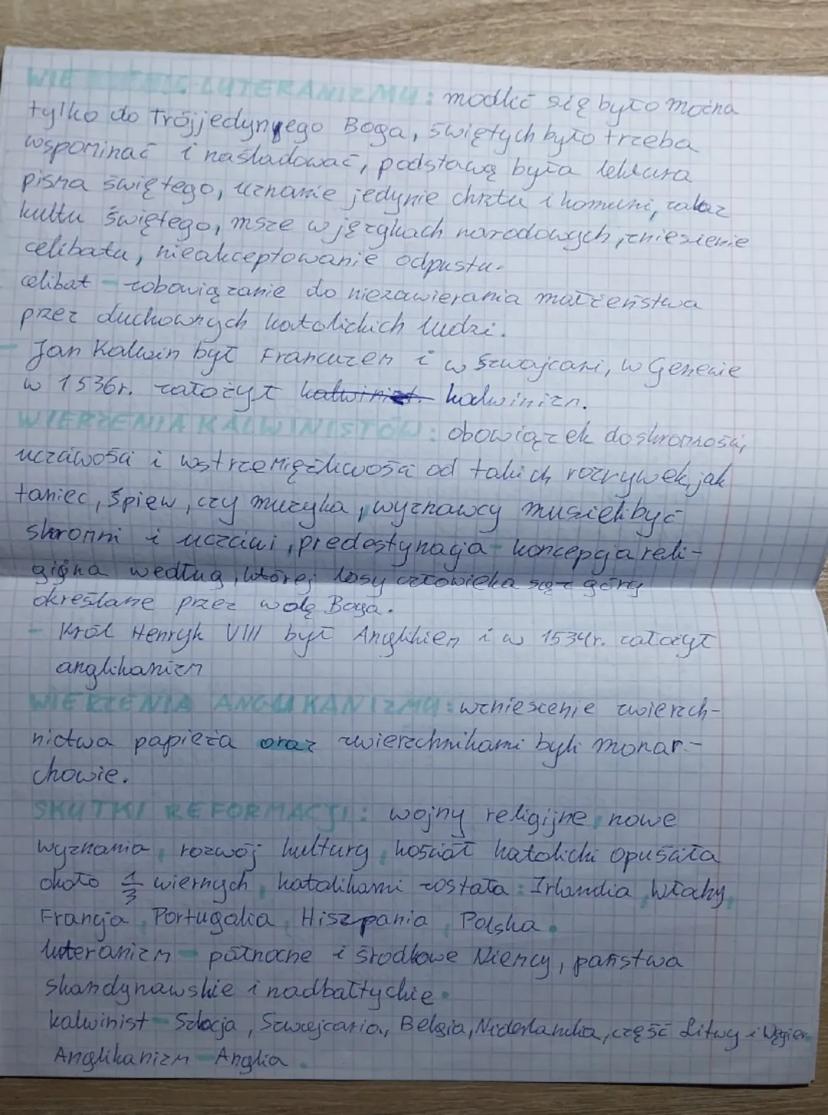 LUTERANIZMU: modlić się było można
tylko do Trójjedynego Boga, świętych było trzeba
wspominać i naśladować, podstawą była lektura
pisma świętego, uznanie jedynie chrztu i komuni, zakaz
kultu świętego, msze w językach narodowych, zniesienie
celibatu, nieakceptowanie odpustu.
celibat - zobowiązanie do niezawierania małżeństwa
przez duchownych katolickich ludzi.
- Jan Kalwin był Francuzem i w Szwajcari, w Genewie
w 1536r. założył kalwinizm.
WIERZENIA KALWINISTÓW: obowiązek doskromności,
uczciwości i wstrzemięźliwości od takich rozrywek, jak
taniec, śpiew, czy muzyka, wyznawcy musieli być
skromni i uczciwi, predestynacja - koncepcja reli-
gijna według, której losy człowieka są z góry
określane przez wolę Boga.
- Król Henryk VIII był Anglikiem i w 1534r. założył
anglikanizm
WIERZENIA ANGLIKANIZMU: wzniesienie zwierzch-
nictwa papieża oraz zwierzchnikami byli monar-
chowie.
SKUTKI REFORMACJI: wojny religijne, nowe
wyznania, rozwój kultury, kościół katolicki opuściła
około 1/3 wiernych, katolikami została: Irlandia, Włahy,
Francja, Portugalia, Hiszpania, Polska.
luteranizm - północne i środkowe Niemcy, państwa
skandynawskie i nadbałtyckie.
kalwinist - Szkocja, Szwajcaria, Belgia, Niderlandia, część Litwy i Węgier
Anglikanizm - Anglia.